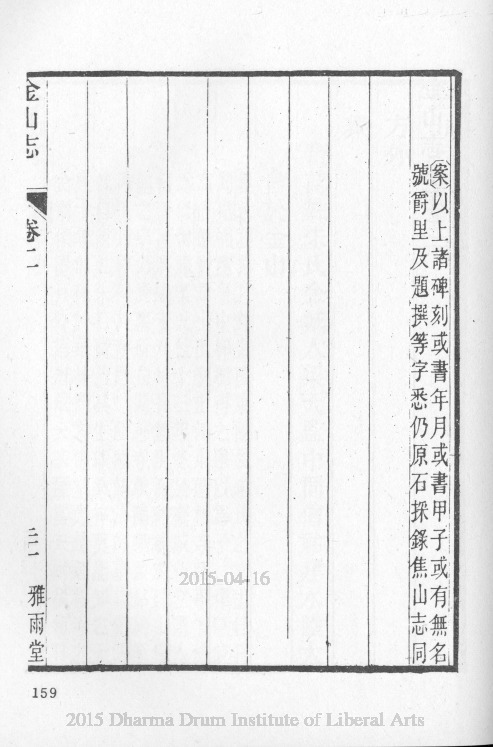 案以上諸碑刻或書年月或書甲子或有無名
號爵里及題撰等字悉仍原石採錄焦山志同
金山志
卷二
雅雨堂
159
2015-04-16
2015 Dharma Drum Institute of Liberal Arts